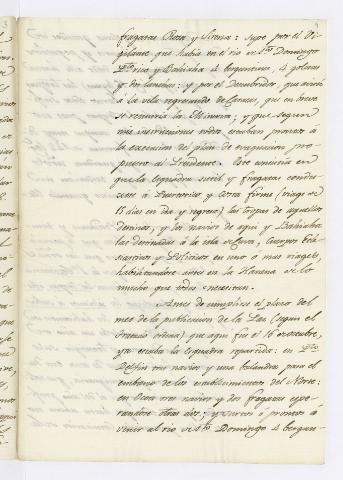 fragatas Rosa y Sirena: supe por el Vi-
gilante que habia en el rio de Sto. Domingo
Pto. rico y Bahiaha 4 bergantines, 4 goletas
y tres lanchas: y por el Descubridor, que arribó
a la vela regresando de Caracas, que en breve
se reuniria la Minerva; y que segun
mis instrucciones todos estaban prontos a
la execucion del plan de evacuacion pro-
puesto al Presidente. Este consistia en
que la Esquadra sutil y fragatas conduz-
case á Puertorico y Costa firme (viage de
15 dias en ida y regreso) las tropas de aquellos
destinos; y los navios de aqui y Bahiaha
las destinadas á la isla de Cuva, Cuerpos Ecle-
siasticos y Politicos en uno o mas viages,
habilitandose antes en la Havana de lo
mucho que todos necesitan.
Antes de cumplirse el plazo del
mes de la publicacion de la Paz (segun el
tratado ordena) que aqui fue el 16 octubre,
ya estaba la esquadra repartida: en Pto.
Delfin tres navios y una balandra para el
embarco de los establecimientos del Norte:
en Ocoa tres navios y dos fragatas espe-
randose otras dos; y surtos ó prontos á
venir al rio de Sto. Domingo 4 bergan-